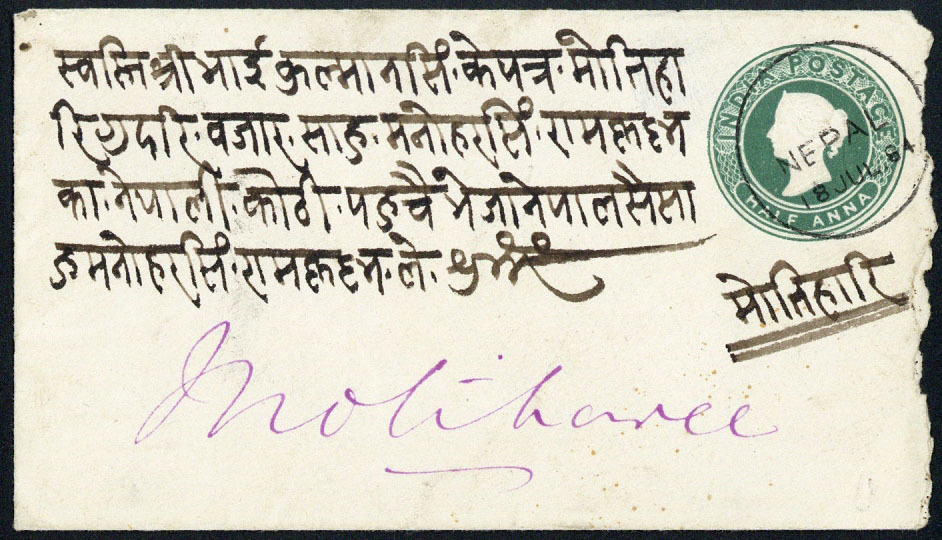 स्वस्ति श्री भाई कुल्मानसिं·के पत्र·मोतिहा
रि दरि·वजार·साहु·मनोहरसिं·राम
का·नेपाली·कोठी·पहुचै भेजा नेपाल सै सा
हु मनोहरसिं·राम·ले·
INDIA POSTAGE
HALF ANNA
NEPAL
18 JUL
मोतिहारि
Motiharee